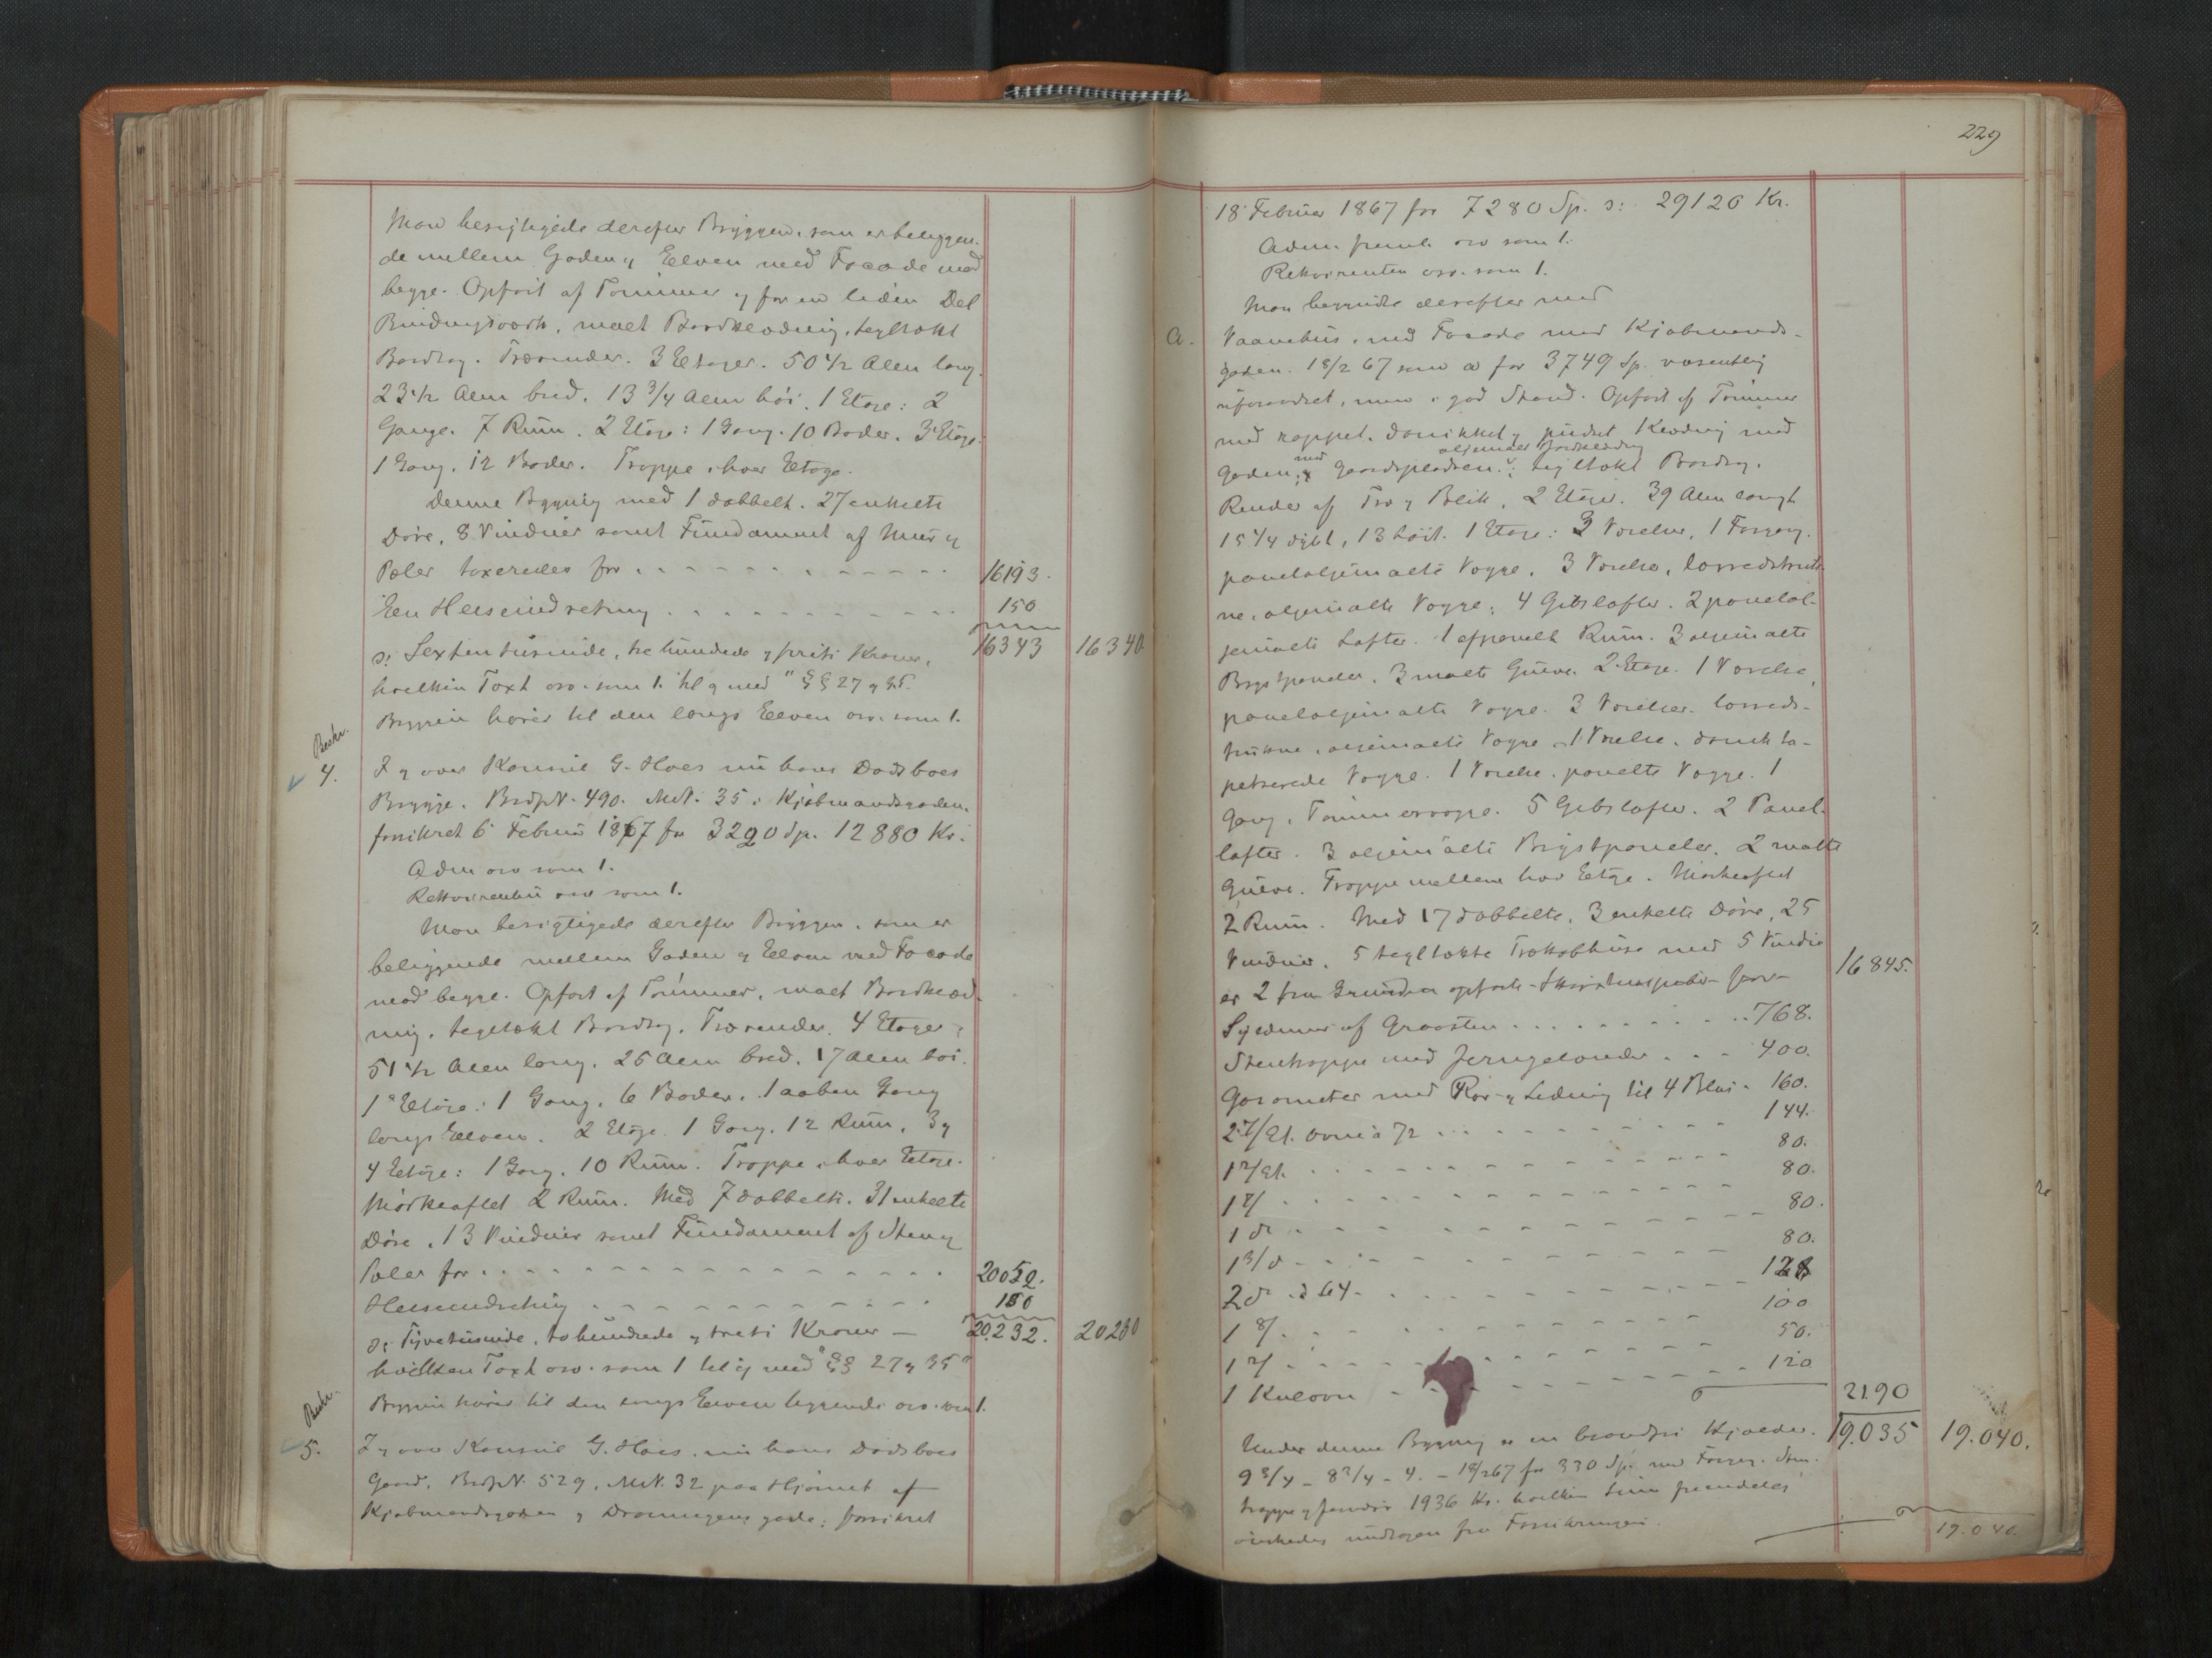 Man besigtigede derefter Bryggen, som er beliggen-
de mellem Gaden og Elven med Facade mod
begge. Opført af Tømmer og for en liden Del
Bindingsværk, malt Bordklædning, teglhækt
Bordtag. Trærender. 3 Etager. 50 1/2 Alen lang.
23 1/2 Alen bred. 13 3/4 Alen høi. 1 Etage: 2
Gange. 7 Rum. 2 Etage: 1 Gang. 10 Boder. 3 Etage:
1 Gang. 12 Boder. Trappe i hver Etage.
Denne Bygning med 1 dobbelt. 27 enkelte
Døre, 8 Vinduer samt Fundament af Mur og
Pæler taxeredes for 16193.
En Heiseindretning 150
16343 16340
ɔ: Sexten tusinde, tre hundrede og førti Kroner,
hvilken Taxt osv. som 1. til og med "§§ 27 og 35"
Bryggen hører til den langs Elven osv. som 1.
Beskr.
4. og over Konsul G. Hoes nu hans Dødsboes
Brygge. BrdpN. 490. MN. 35 i Kjøbmandsgaden.
forsikret 6 Februar 1867 for 3220 Sp. 12880 Kr.
Adm osv som 1.
Rekvirenten osv som 1.
Man besigtigede derefter Bryggen, som er
beliggende mellem Gaden og Elven med Facade
mod begge. Opført af Tømmer, malt Bordklæd-
ning, teglhækt Bordtag. Trærender. 4 Etager:
51 1/2 Alen lang. 26 Alen bred. 17 Alen høi.
1 Etage: 1 Gang. 6 Boder. 1 aaben Gang
langs Elven. 2 Etage 1 Gang. 12 Rum. 3 og
4 Etage: 1 Gang. 10 Rum. Trappe i hver Etage.
Mørkeloftet 2 Rum. Med 7 dobbelte. 31 enkelte
Døre, 13 Vinduer samt Fundament af Sten og
Pæler for 20052.
Heiseindretning 180
ɔ: Tyvetusinde, tohundrede og treti Kroner — 20.232. 20230
hvilken Taxt osv. som 1 til og med "§§ 27 og 35"
Bryggen hører til den langs Elven liggende osv. som 1.
Beskr.
5. og over Konsul G. Hoes, nu hans Dødsboes
Gaard, BrdpN. 529, MN. 32 paa Hjørnet af
Kjøbmandsgaden og Dronningens gade: forsikret
229
18 Februar 1867 for 7280 Sp. ɔ: 29120 Kr.
Adm. fremh. osv som 1.
Rekvirenten osv. som 1.
Man begyndte derefter med
a. Vaanehus, med Facade mod Kjøbmands-
gaden. 18/2 67 som a for 3749 Sp. væsentlig
uforandret, men i god Stand. Opført af Tømmer
med rappet, donikket og pudset Klædning mod
Gaden, og mod Gaardspladsen oljemalet Bordklædning; teglhækt Bordtag.
Render af Træ og Blik, 2 Etager. 39 Alen langt
15 1/4 dybt, 13 høit. 1 Etage: 3 Værelser, 1 Forgang.
paneloljemalte Vægge. 3 Værelser, lærredstrukk-
ne, oljemalte Vægge; 4 Gibslofter. 2 panelol-
jemalte Lofter. 1 afpanelt Rum. 3 oljemalte
Brystpaneler. 3 malte Gulve. 2 Etage. 1 Værelse,
paneloljemalte Vægge. 3 Værelser. lærreds-
trukne, oljemalte Vægge. 1 Værelse, donik ta-
petserede Vægge. 1 Værelse. panelte Vægge. 1
Gang, Tømmervægge. 5 Gibslofter. 2 Panel-
lofter. 3 oljemalte Brystpaneler. 2 malte
Gulve. Trappe mellem hver Etage. Mørkeloftet
2 Rum. Med 17 dobbelte, 3 enkelte Døre, 25
Vinduer. 5 teglhækte Trækobhuse med 5 Vinduer
er 2 fra Grunden opførte Skorstenspiber for 16845.
Syldmur af Graasten 768.
Stentrappe med Jerngelænder 400.
Gasometer med Rør og Ledning til 4 Blus 160.
2 Et. Ovne à 72 144.
1 Et. 80.
1 80.
1 do 80.
1 do 80.
2 do à 64 128
1 100
1 50.
1 Kulovn 120
2190
Under denne Bygning er en brandfri Kjælder. 19.035 19.040.
9 3/4 - 8 3/4 - 4. - 18/2 67 for 330 Sp. med
trappe og 1936 Kr. hvilken fremdeles
ønskedes undtagen fra Forsikringen.
19.040.